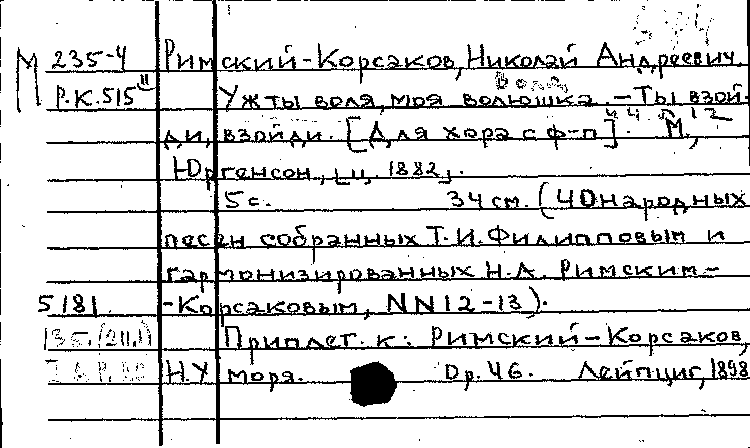 М 235-4 Римский-Корсаков, Николай Андреевич.
Р.К.515 Уж ты воля, моя волюшка. - Ты взой-
ди, взойди. [Для хора с ф-п]. М.,
Юргенсон, ц. 1882.
5 с. 34 см. (40 народных
песен собранных Т.И.Филипповым и
гармонизированных Н.А. Римским-
5181 -Корсаковым, NN12-13).
Приплет. к: Римский-Корсаков,
Н. У моря. Op.46. Лейпциг, 1898